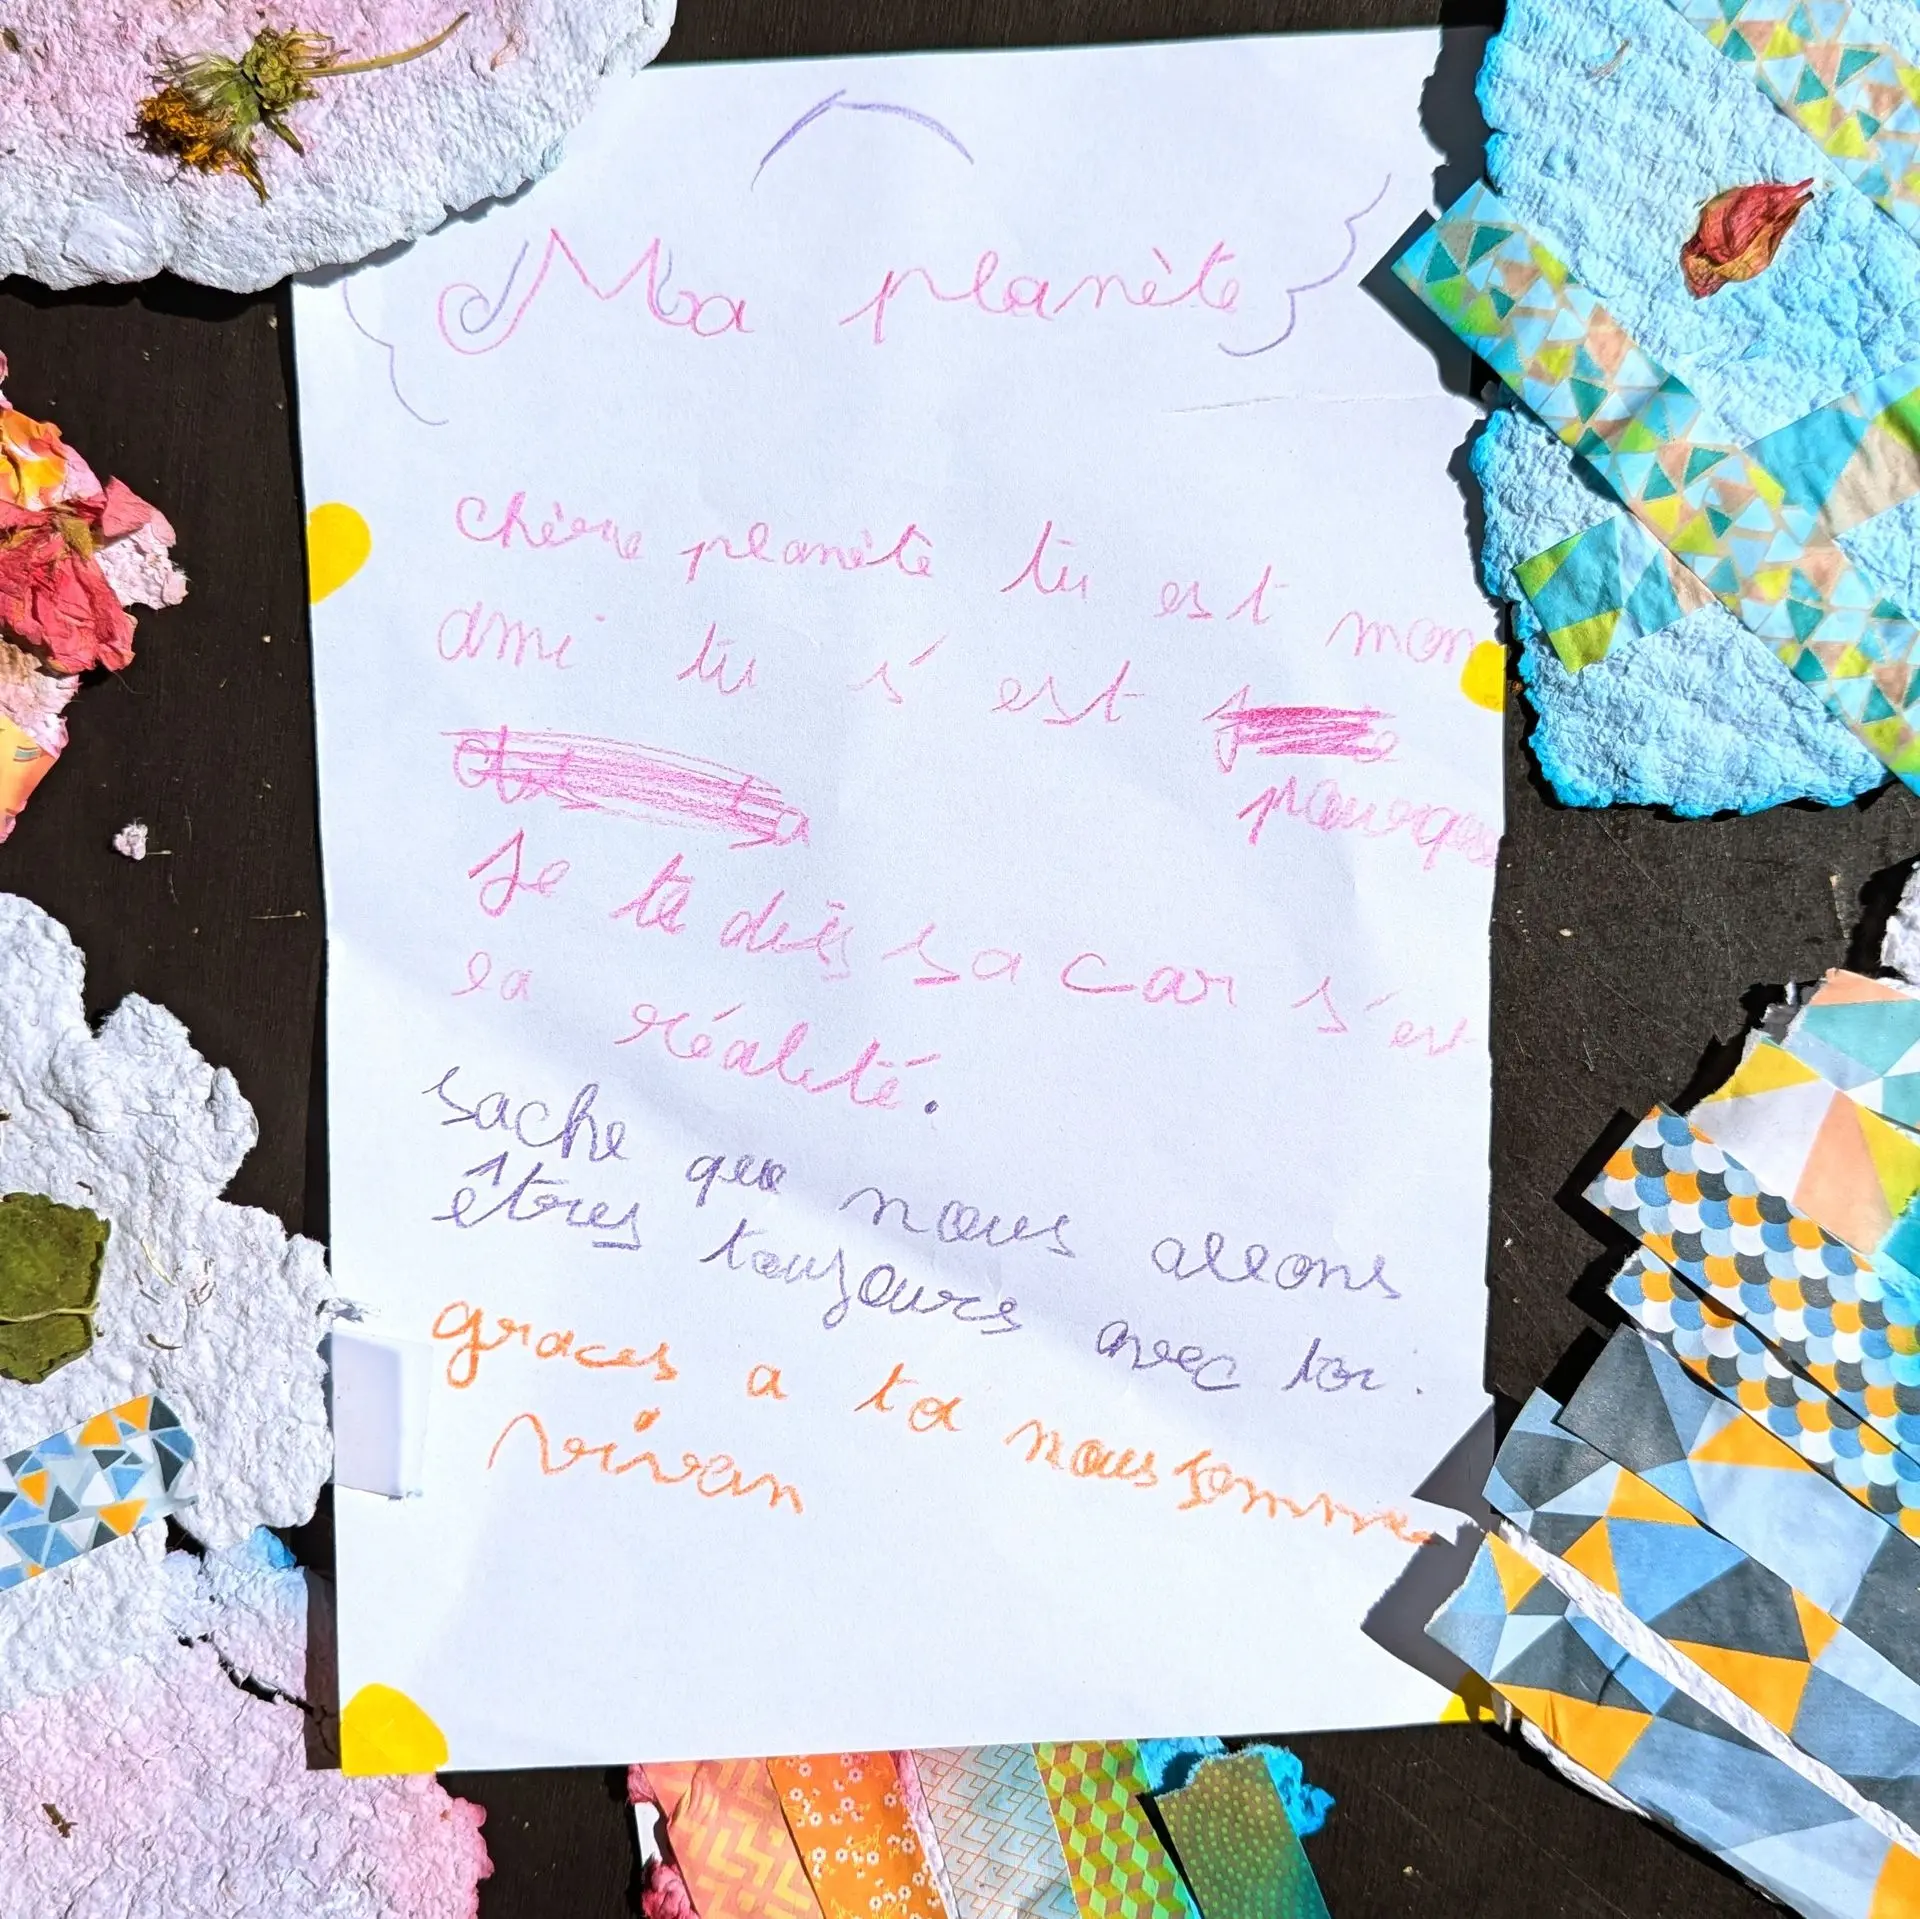 Ma planète
chère planète tu est mon
ami tu s'est
pourquoi
Je te dis sa car s'est
la réalité.
sache que nous allons
êtres toujours avec toi.
graces a toi nous somme
vivan